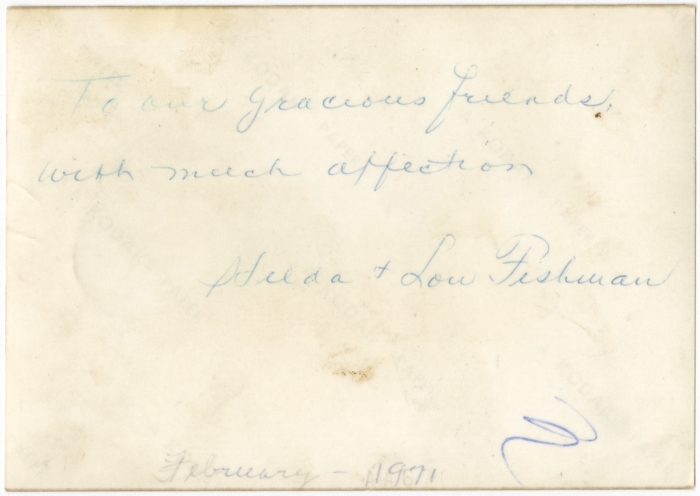 To our gracious friends,
with much affection
Hilda + Lou Fishman
February - 1971